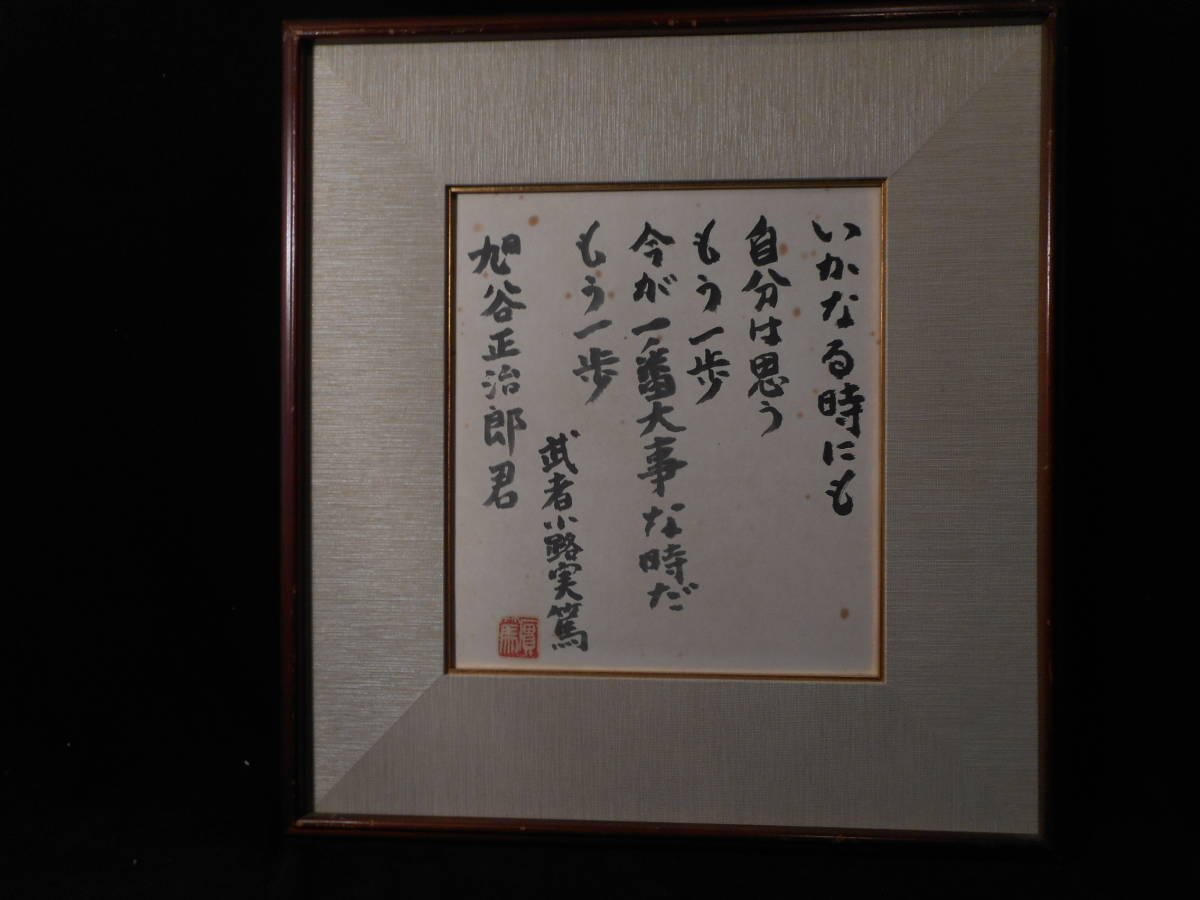 いかなる時にも
自分は思う
もう一歩
今が一番大事な時だ
もう一歩
武者小路実篤
旭谷正治郎君
實篤